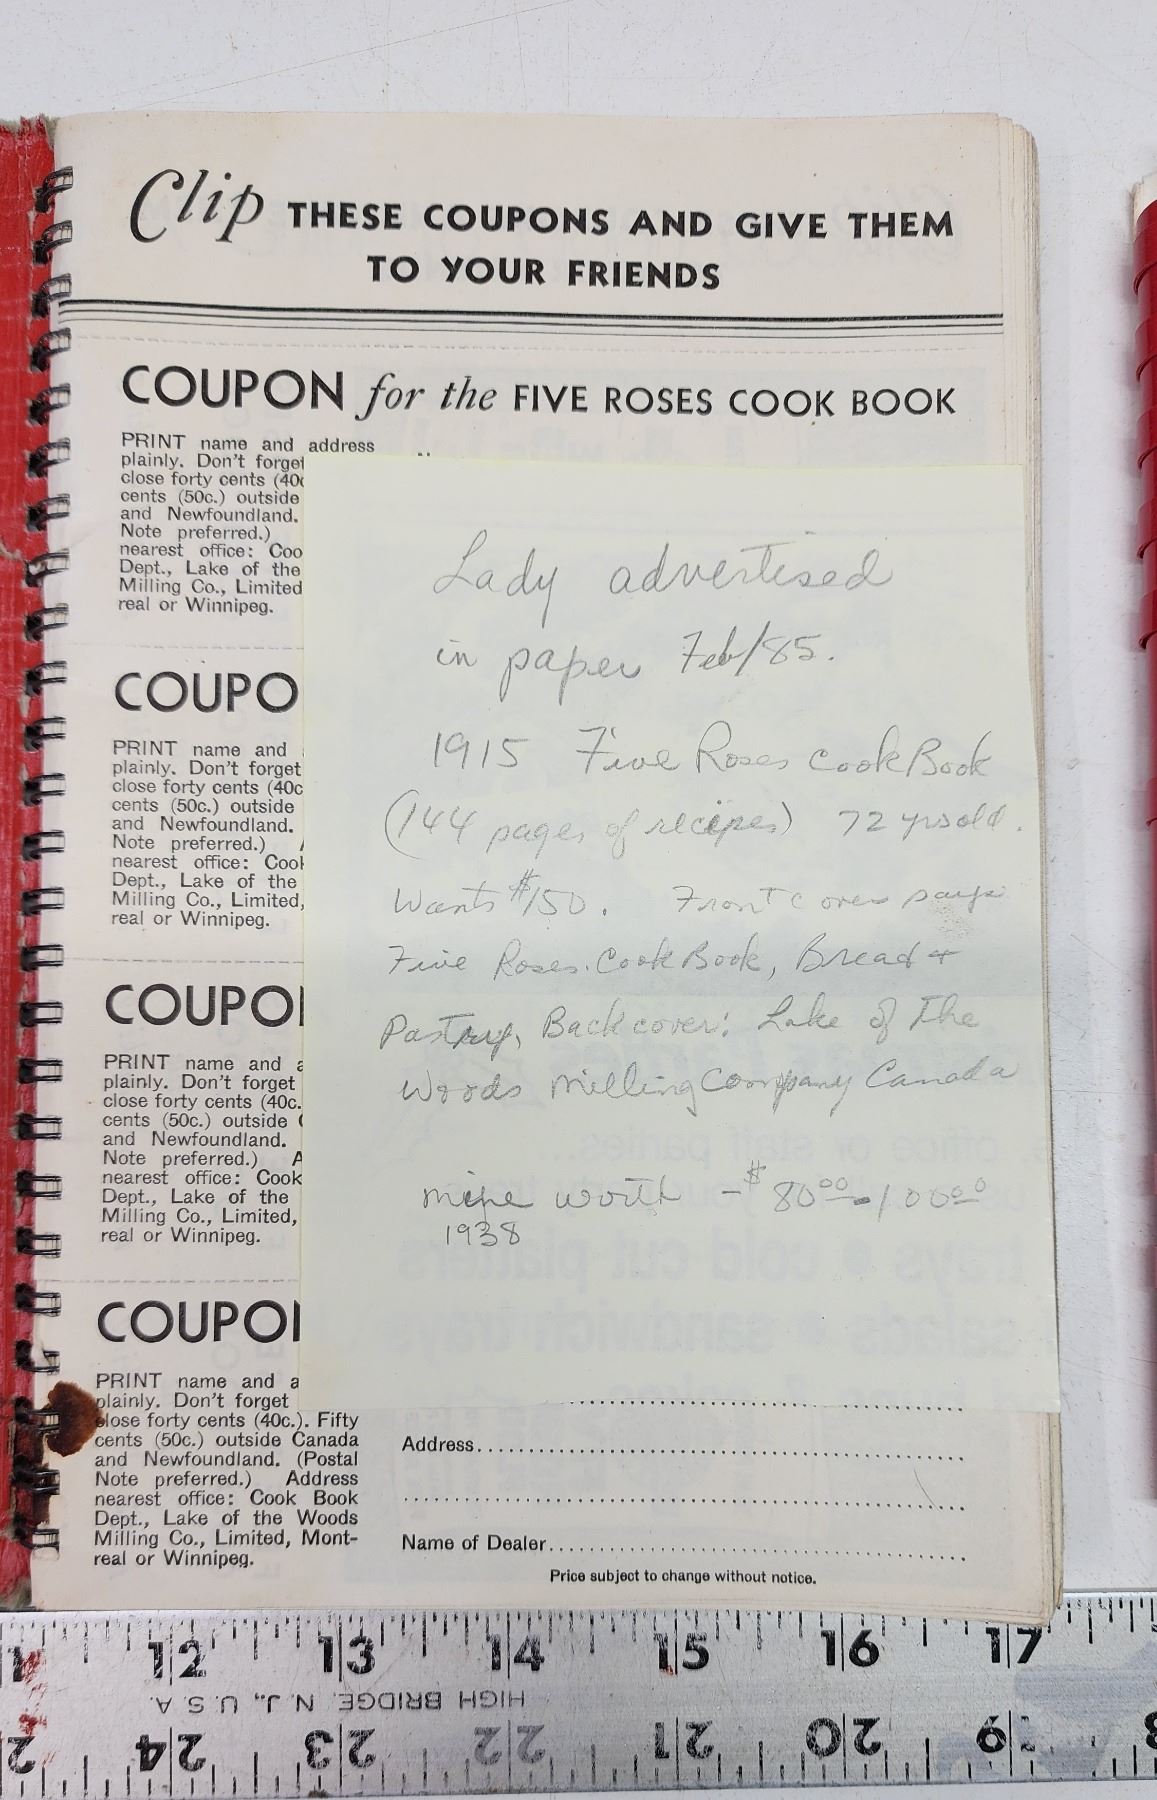 Clip THESE COUPONS AND GIVE THEM
TO YOUR FRIENDS
COUPON for the FIVE ROSES COOK BOOK
PRINT name and address
plainly. Don't forget
close forty cents (40c
cents (50c.) outside
and Newfoundland.
Note preferred.)
nearest office: Coo
Dept., Lake of the
Milling Co., Limited
real or Winnipeg.
Lady advertised
in paper Feb/85.
1915 Five Roses Cook Book
(144 pages of recipes) 72 yrs old.
Wants $150. Front cover says
Five Roses. Cook Book, Bread +
Pastry, Back cover: Lake of The
Woods Milling Company Canada
mine worth - $80.00 - 100.00
1938
COUPO
PRINT name and
plainly. Don't forget
close forty cents (40c
cents (50c.) outside
and Newfoundland.
Note preferred.)
nearest office: Cool
Dept., Lake of the
Milling Co., Limited,
real or Winnipeg.
COUPO
PRINT name and a
plainly. Don't forget
close forty cents (40c.
cents (50c.) outside
and Newfoundland.
Note preferred.) A
nearest office: Cook
Dept., Lake of the
Milling Co., Limited,
real or Winnipeg.
COUPO
PRINT name and a
plainly. Don't forget
close forty cents (40c.). Fifty
cents (50c.) outside Canada
and Newfoundland. (Postal
Note preferred.) Address
nearest office: Cook Book
Dept., Lake of the Woods
Milling Co., Limited, Mont-
real or Winnipeg.
Address
Name of Dealer
Price subject to change without notice.
12 13 14 15 16 17
HIGH BRIDGE, N.J., U.S.A.
24 23 22 21 20 19